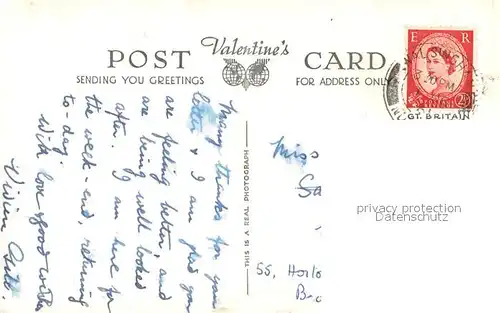 POST Valentine's CARD
SENDING YOU GREETINGS
FOR ADDRESS ONLY
E R
2½
GT. BRITAIN
THIS IS A REAL PHOTOGRAPH
Many thanks for your
letter & I am glad you
are feeling better, and
are being well looked
after. I am here for
the week-end, returning
to-day.
With love & good wishes
Vivien
Miss
55,
privacy protection
Datenschutz